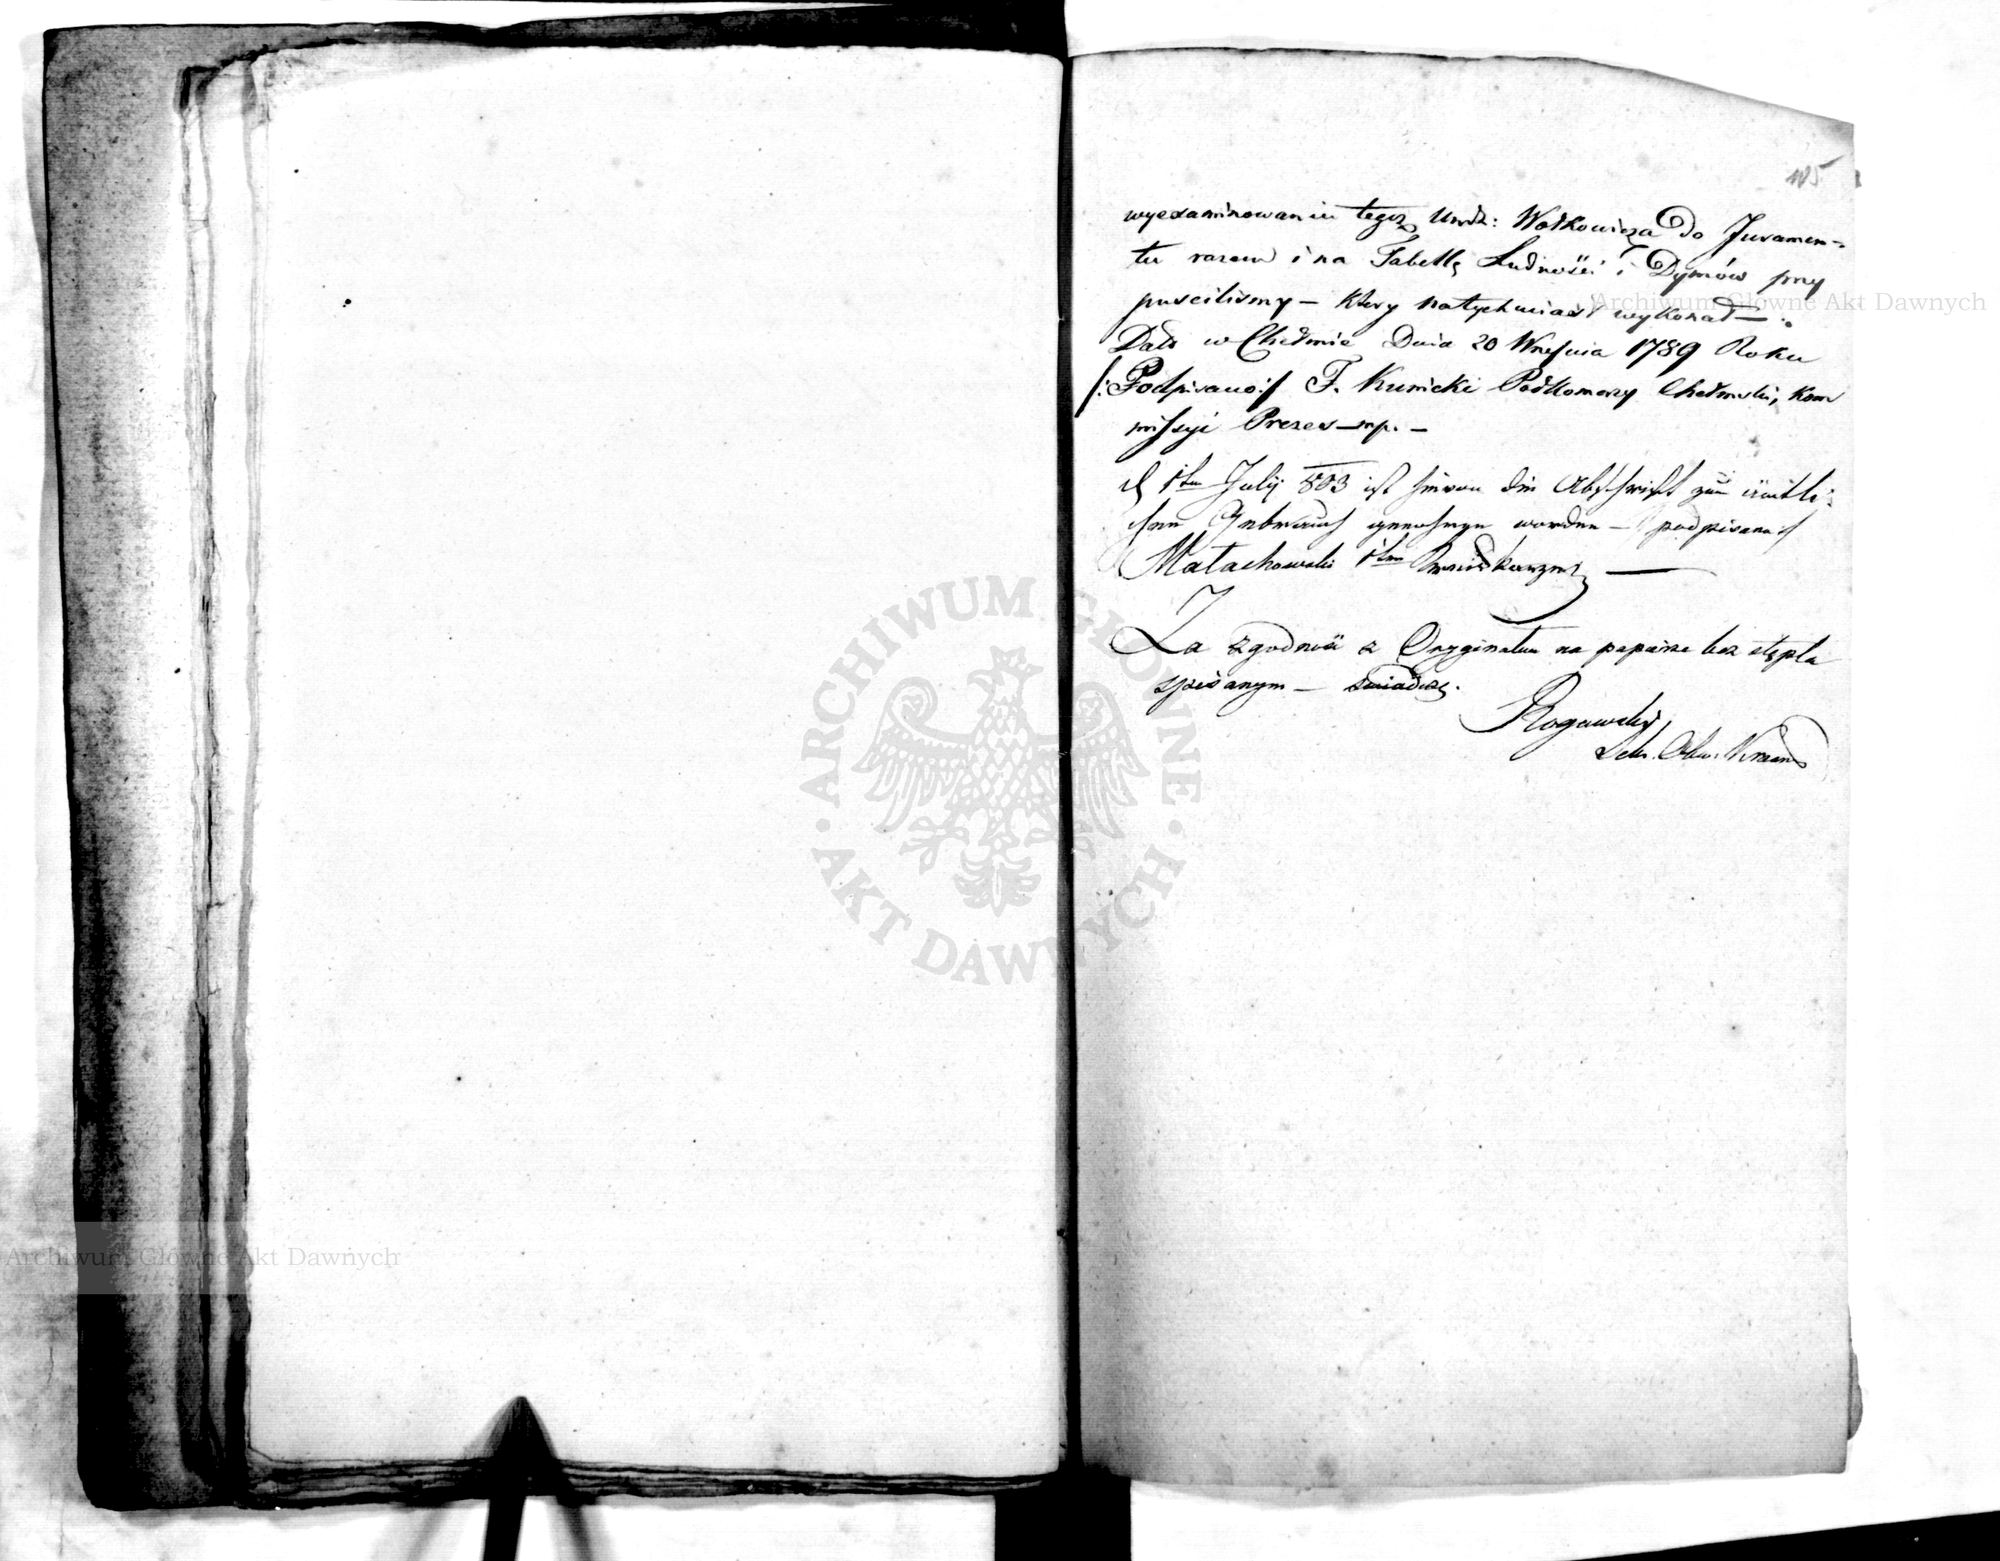 105
wyexaminowaniu tegoż Urodz: Wołkowicza do Juramen=
tu razem i na Tabellę Ludności i Dymów przy
puscilismy – który natychmiast wykonał –.
Dato w Chełmie Dnia 20 Wrzesnia 1789 Roku
/: Podpisano :/ F. Kunicki Podkomorzy Chełmski, Kom
missyi Prezes – mp. –
1ten July 803 ist hievon die Abschrift zum ämtli:
chen Gebrauch genohmen worden – podpisano :/
Małachowski 1ten
Za zgodność z Oryginałem na papierze bez stępla
spisanym – swiadczę.
Rogawski
Sekr.
Archiwum Główne Akt Dawnych
Archiwum Główne Akt Dawnych
ARCHIWUM GŁÓWNE · AKT DAWNYCH ·